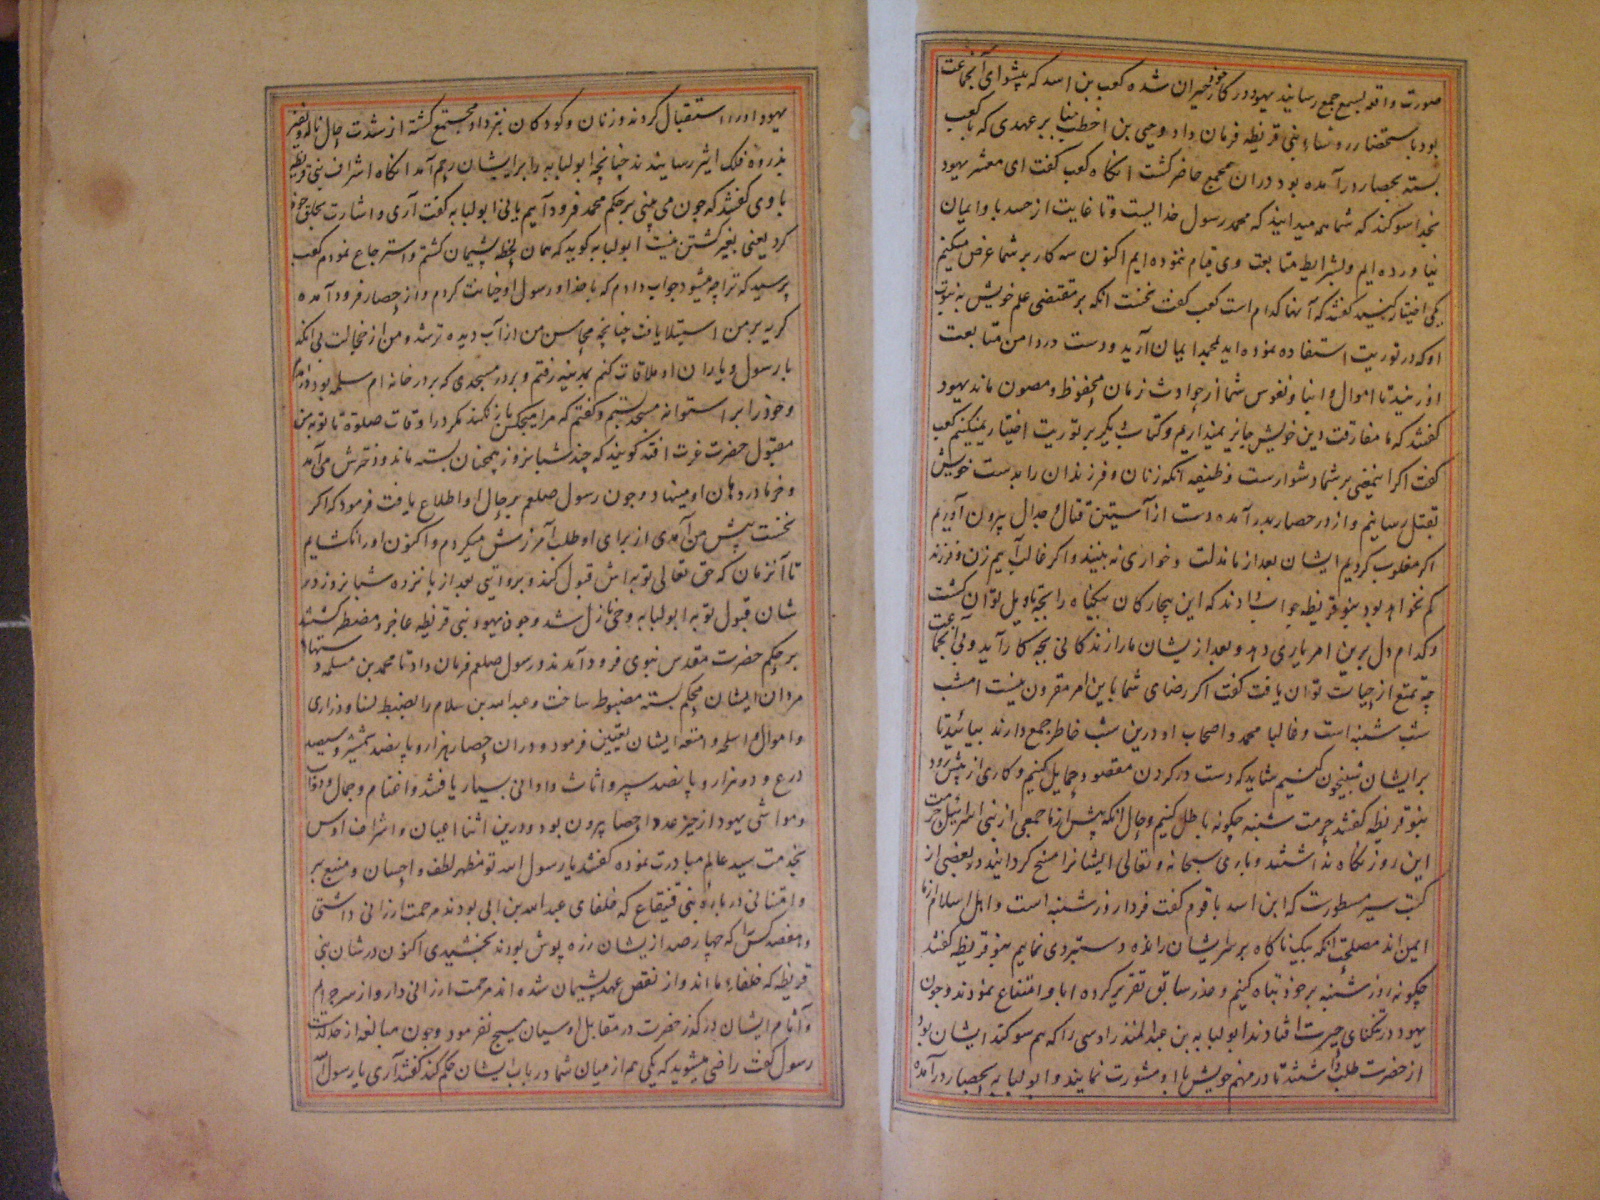 صورت واقعه بسمع جمع رسانید یهود در کار خود حیران شده کعب بن اسد که پیشوای آنجماعت
بود باستحضار رؤساء بنی قریظه فرمان داد و حیی بن اخطب بنا بر عهدی که با کعب
بسته بحصار درآمده بود دران مجمع حاضر کشت انکاه کعب کفت ای معشر یهود
بخدا سوکند که شما همه میدانید که محمد رسول خداایست و تا غایت از حسد باو ایمان
نیاورده ایم و بشرایط متابعت وی قیام ننموده ایم اکنون سه کار بر شما عرض میکنیم
یکی اختیار کنید کفتند که آنها کدام است کعب کفت نخست انکه بر مقتضی علم خویش به نبوت
او که در توریت استفاده نموده اید بمحمد ایمان آرید و دست در دامن متابعت
او زنید تا اموال و ابنا و نفوس شما از حوادث زمان محفوظ و مصون ماند یهود
کفتند که ما مفارقت دین خویش جایز نمیداریم و کتاب دیکر بر توریت اختیار نمیکنیم کعب
کفت اکر اینمعنی بر شما دشوارست وظیفه انکه زنان و فرزندان را بدست خویش
بقتل رسانیم و از در حصار بدر آمده دست از آستین قتال و جدال بیرون آوریم
اکر مغلوب کردیم ایشان بعد از ما مذلت و خواری نه بینند و اکر غالب آییم زن و فرزند
کم نخواهد بود بنو قریظه جواب دادند که این بیچارکان بیکناه را بچه تاویل توان کشت
و کدام دل برین امر یاری دهد و بعد از یشان ما را زندکانی بچه کار آید و بی آنجماعت
چه تمتع از حیات توان یافت کفت اکر رضای شما باین امر مقرون نیست امشب
شب شنبه است و غالبا محمد و اصحاب او درین شب خاطر جمع دارند بیائید تا
بر ایشان شبیخون کنیم شاید که دست در کردن مقصود حمایل کنیم و کاری از پیش رود
بنو قریظه کفتند حرمت شنبه چکونه باطل کنیم و حال انکه پیش از ما جمعی از بنی اسرائیل حرمت
این روز نکاه نداشتند و باری سبحانه و تعالی ایشانرا مسخ کردانید در بعضی از
کتب سیر مسطورست که ابن اسد با قوم کفت فردا روز شنبه است و اهل اسلام از ما
ایمن اند مصلحت انکه بیکبار ناکاه بر سر ایشان رانده دستبردی نماییم بنو قریظه کفتند
چکونه روز شنبه بر خود تباه کنیم و عذر سابق تقریر کرده ابا و امتناع نمودند و چون
یهود در تنکنای حیرت افتادند ابو لبابه بن عبد المنذر اوسی را که هم سوکند ایشان بود
از حضرت طلب داشتند تا در مهم خویش با او مشورت نمایند و ابو لبابه بحصار درآمده
یهود او را استقبال کردند و زنان و کودکان نزد او مجتمع کشته از شدت حال ناله و نفیر
بذروه فلک اثیر رسانیدند چنانچه ابو لبابه را بر ایشان رحم آمد انکاه اشراف بنی قریظه
با وی کفتند که چون می بینی بر حکم محمد فرود آییم یا نی ابو لبابه کفت آری و اشارت بحلق خود
کرد یعنی بغیر کشتن نیست ابو لبابه کوید که همان لحظه پشیمان کشتم و استرجاع نمودم کعب
پرسید که ترا چه میشود جواب دادم که با خدا و رسول او خیانت کردم و از حصار فرود آمده
کریه بر من استیلا یافت چنانچه محاسن من از آب دیده تر شد و من از خجالت بی انکه
با رسول و یاران او ملاقات کنم بمدینه رفتم و بدر مسجدی که بر در خانه ام سلمه بود درآمدم
و خود را بر استوانه مسجد بستم و کفتم که مرا هیچکس باز نکند مکر در اوقات صلوة تا توبه من
مقبول حضرت عزت افتد کویند که چند شبانروز همچنان بسته ماند و دخترش می آمد
و خرما در دهان او مینهاد و چون رسول صلعم بر حال او اطلاع یافت فرمود که اکر
نخست پیش من آمدی از برای او طلب آمرزش میکردم و اکنون او را نکشایم
تا آنزمان که حق تعالی توبه اش قبول کند و بروایتی بعد از پانزده شبانروز در
شان قبول توبه ابو لبابه وحی نازل شد و چون یهود بنی قریظه عاجز و مضطر کشتند
بر حکم حضرت مقدس نبوی فرود آمدند و رسول صلعم فرمان داد تا محمد بن مسلمه دستهاء
مردان ایشان محکم بسته مضبوط ساخت و عبدالله بن سلام را بضبط نسا و ذراری
و اموال و اسلحه و امتعه ایشان تعیین فرمود و دران حصار هزار و پانصد شمشیر و سیصد
درع و دو هزار و پانصد سپر و اثاث و اوانی بسیار یافتند و اغنام و جمال و دواب
و مواشی یهود از حیز عد و احصا بیرون بود و درین اثنا اعیان و اشراف اوس
بخدمت سید عالم مبادرت نموده کفتند یا رسول الله تو مظهر لطف و احسان و منبع بر
و امتنانی در باره بنی قینقاع که خلفای عبدالله بن ابی بودند مرحمت ارزانی داشتی
و هفصد کس را که چهار صد از یشان زره پوش بودند بخشیدی اکنون در شان بنی
قریظه که خلفاء ما اند و از نقض عهد پشیمان شده اند مرحمت ارزانی دار و از سر جرایم
و آثام ایشان درکذر حضرت در مقابل اوسیان هیچ نفرمود و چون مبالغه از حد کذشت
رسول کفت راضی میشوید که یکی هم از میان شما در باب ایشان حکم کند کفتند آری یا رسول الله